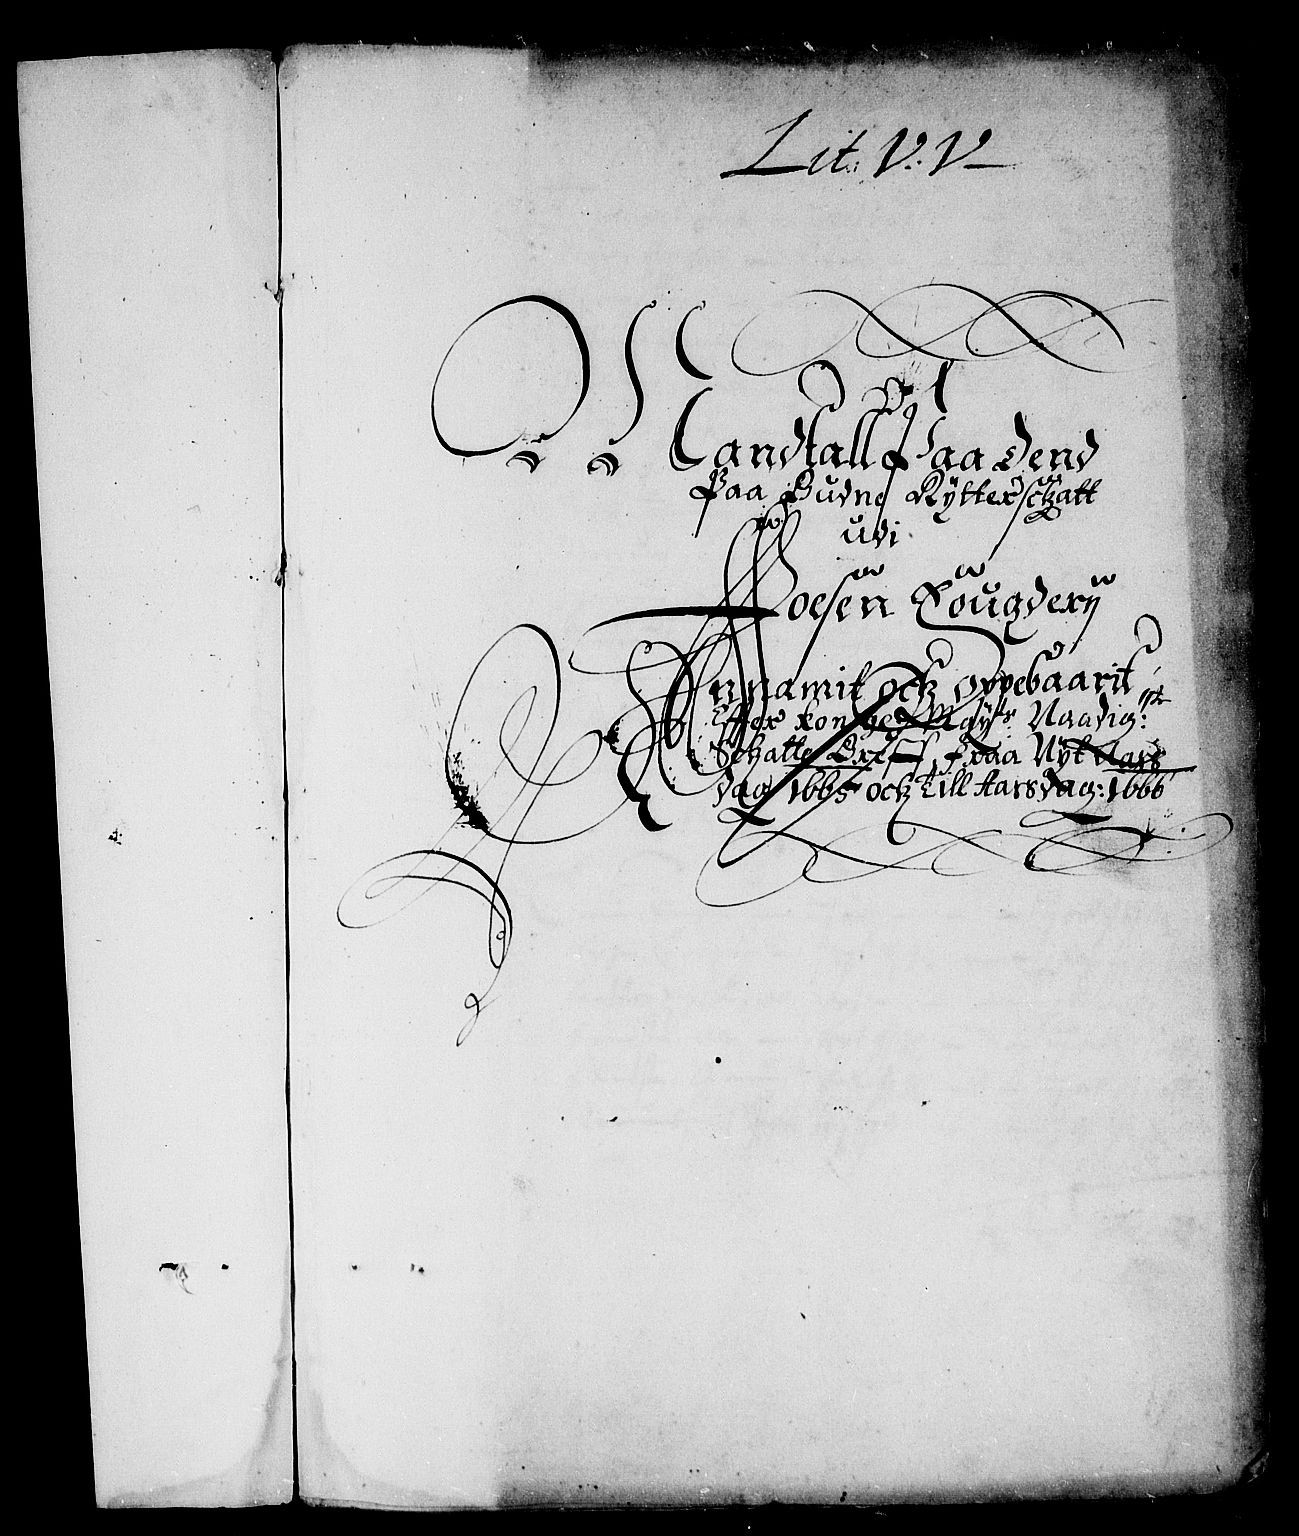 Lit: V: V
Mandtall Paa dend
Paa Budne Rÿtterschatt
udi
Foesen Fougderij
Annamit och oppebaarit
Effter Konge: Maÿts Naadigste
Schatte Breff, fraa Nÿt Aars
dag 1665 och till Aarsdag: 1666